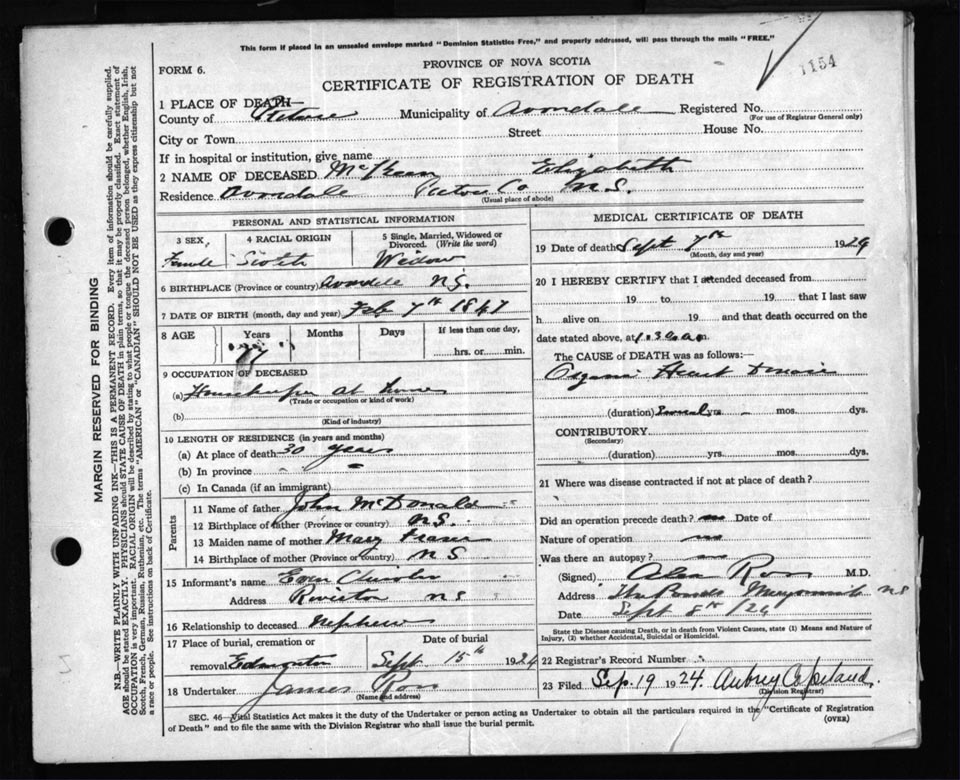 This form if placed in an unsealed envelope marked "Dominion Statistics Free," and properly addressed, will pass through the mails "FREE."
1154
PROVINCE OF NOVA SCOTIA
FORM 6.
CERTIFICATE OF REGISTRATION OF DEATH
1 PLACE OF DEATH—
County of Pictou Municipality of Avondale Registered No.
(For use of Registrar General only)
City or Town Street House No.
If in hospital or institution, give name
2 NAME OF DECEASED Elizabeth
Residence Avondale Pictou Co N.S.
(Usual place of abode)
PERSONAL AND STATISTICAL INFORMATION
3 SEX, 4 RACIAL ORIGIN 5 Single, Married, Widowed or Divorced. (Write the word)
Female Scotch Widow
6 BIRTHPLACE (Province or country) Avondale N.S.
7 DATE OF BIRTH (month, day and year) Feb 7th 1847
8 AGE Years Months Days If less than one day,
77 hrs. or min.
9 OCCUPATION OF DECEASED
(a) Housekeeper at home
(Trade or occupation or kind of work)
(b)
(Kind of industry)
10 LENGTH OF RESIDENCE (in years and months)
(a) At place of death 30 years
(b) In province
(c) In Canada (if an immigrant)
Parents
11 Name of father John McDonald
12 Birthplace of father (Province or country) N.S.
13 Maiden name of mother Mary Fraser
14 Birthplace of mother (Province or country) N S
15 Informant's name Ewen
Address N S
16 Relationship to deceased Nephew
17 Place of burial, cremation or Date of burial
removal Sept 15th 1924
18 Undertaker James Ross
(Name and address)
MEDICAL CERTIFICATE OF DEATH
19 Date of death Sept 7th 1924
(Month, day and year)
20 I HEREBY CERTIFY that I attended deceased from
19 to 19 that I last saw
h alive on 19 and that death occurred on the
date stated above, at 1.30 a.m.
The CAUSE OF DEATH was as follows:—
Organic Heart Disease
(duration) Several yrs. mos. dys.
CONTRIBUTORY
(Secondary)
(duration) yrs. mos. dys.
21 Where was disease contracted if not at place of death?
Did an operation precede death? no Date of
Nature of operation no
Was there an autopsy? no
(Signed) Alex Ross M.D.
Address N S
Date Sept 8th /24
State the Disease causing Death, or in death from Violent Causes, state (1) Means and Nature of Injury, (2) whether Accidental, Suicidal or Homicidal.
22 Registrar's Record Number
23 Filed Sep. 19 1924. Aubrey Copeland.
(Division Registrar)
SEC. 46—Vital Statistics Act makes it the duty of the Undertaker or person acting as Undertaker to obtain all the particulars required in the "Certificate of Registration
of Death" and to file the same with the Division Registrar who shall issue the burial permit.
(OVER)
MARGIN RESERVED FOR BINDING
N.B.—WRITE PLAINLY WITH UNFADING INK—THIS IS A PERMANENT RECORD. Every item of information should be carefully supplied.
AGE should be stated EXACTLY. PHYSICIANS should STATE CAUSE OF DEATH in plain terms, so that it may be properly classified. Exact statement of
OCCUPATION is very important. RACIAL ORIGIN will be described by stating to what people or tongue the deceased person belonged, whether English, Irish,
Scotch, French, German, Russian, Ruthenian, etc. The terms "AMERICAN" or "CANADIAN" SHOULD NOT BE USED as they express citizenship but not
a race or people. See instructions on back of Certificate.